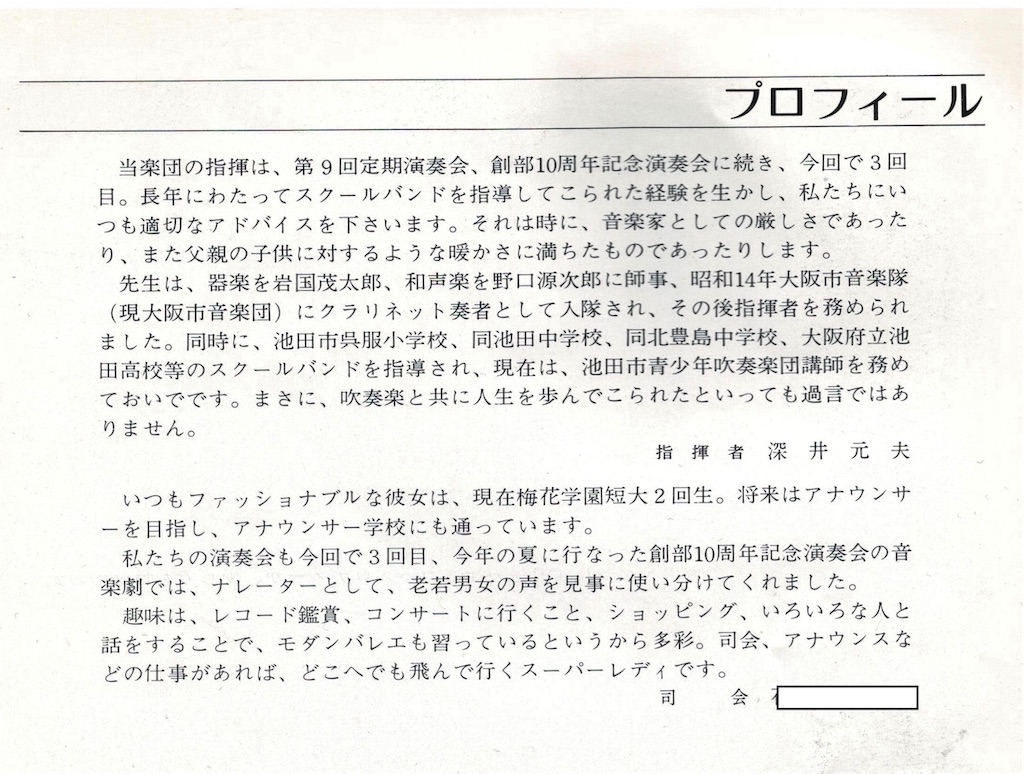 プロフィール
当楽団の指揮は、第9回定期演奏会、創部10周年記念演奏会に続き、今回で3回
目。長年にわたってスクールバンドを指導してこられた経験を生かし、私たちにい
つも適切なアドバイスを下さいます。それは時に、音楽家としての厳しさであった
り、また父親の子供に対するような暖かさに満ちたものであったりします。
先生は、器楽を岩国茂太郎、和声楽を野口源次郎に師事、昭和14年大阪市音楽隊
(現大阪市音楽団)にクラリネット奏者として入隊され、その後指揮者を務められ
ました。同時に、池田市呉服小学校、同池田中学校、同北豊島中学校、大阪府立池
田高校等のスクールバンドを指導され、現在は、池田市青少年吹奏楽団講師を務め
ておいでです。まさに、吹奏楽と共に人生を歩んでこられたといっても過言ではあ
りません。
指揮者 深井元夫
いつもファッショナブルな彼女は、現在梅花学園短大2回生。将来はアナウンサ
ーを目指し、アナウンサー学校にも通っています。
私たちの演奏会も今回で3回目、今年の夏に行なった創部10周年記念演奏会の音
楽劇では、ナレーターとして、老若男女の声を見事に使い分けてくれました。
趣味は、レコード鑑賞、コンサートに行くこと、ショッピング、いろいろな人と
話をすることで、モダンバレエも習っているというから多彩。司会、アナウンスな
どの仕事があれば、どこへでも飛んで行くスーパーレディです。
司会